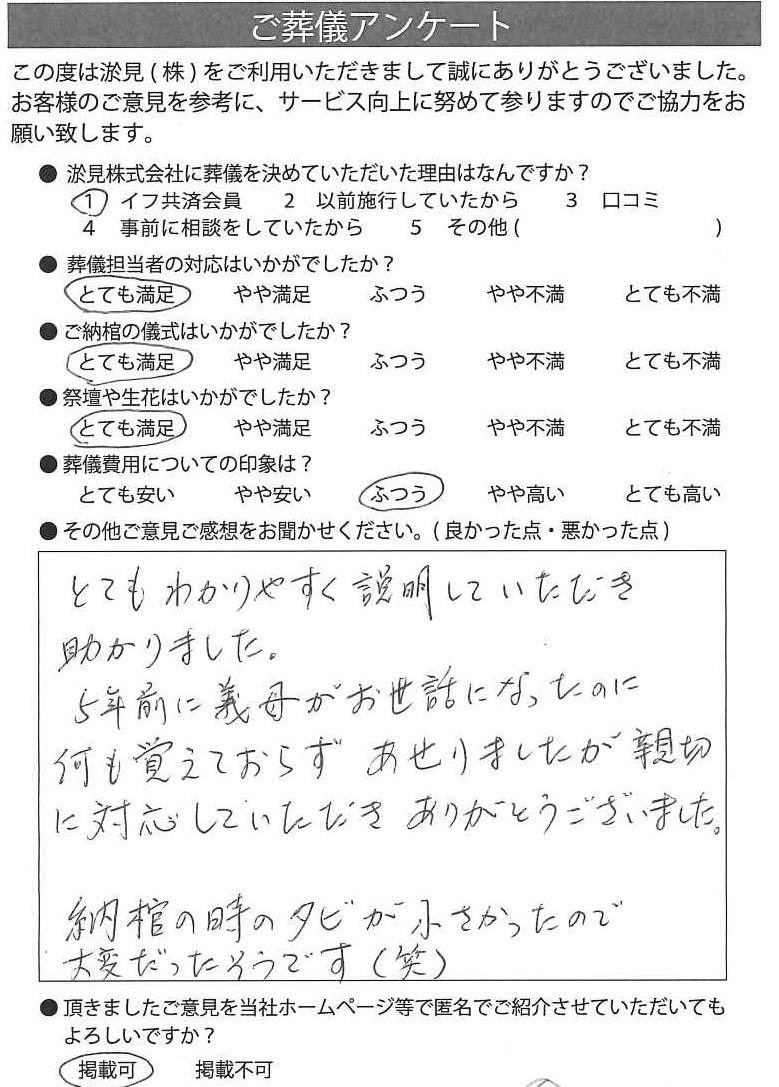 ご葬儀アンケート
この度は淤見(株)をご利用いただきまして誠にありがとうございました。
お客様のご意見を参考に、サービス向上に努めて参りますのでご協力をお
願い致します。
● 淤見株式会社に葬儀を決めていただいた理由はなんですか？
1 イフ共済会員 2 以前施行していたから 3 口コミ
4 事前に相談をしていたから 5 その他( )
● 葬儀担当者の対応はいかがでしたか？
とても満足 やや満足 ふつう やや不満 とても不満
● ご納棺の儀式はいかがでしたか？
とても満足 やや満足 ふつう やや不満 とても不満
● 祭壇や生花はいかがでしたか？
とても満足 やや満足 ふつう やや不満 とても不満
● 葬儀費用についての印象は？
とても安い やや安い ふつう やや高い とても高い
● その他ご意見ご感想をお聞かせください。(良かった点・悪かった点)
とてもわかりやすく説明していただき
助かりました。
5年前に義母がお世話になったのに
何も覚えておらず あせりましたが親切
に対応していただき ありがとうございました。
納棺の時のタビが小さかったので
大変だったそうです(笑)
● 頂きましたご意見を当社ホームページ等で匿名でご紹介させていただいても
よろしいですか？
掲載可 掲載不可